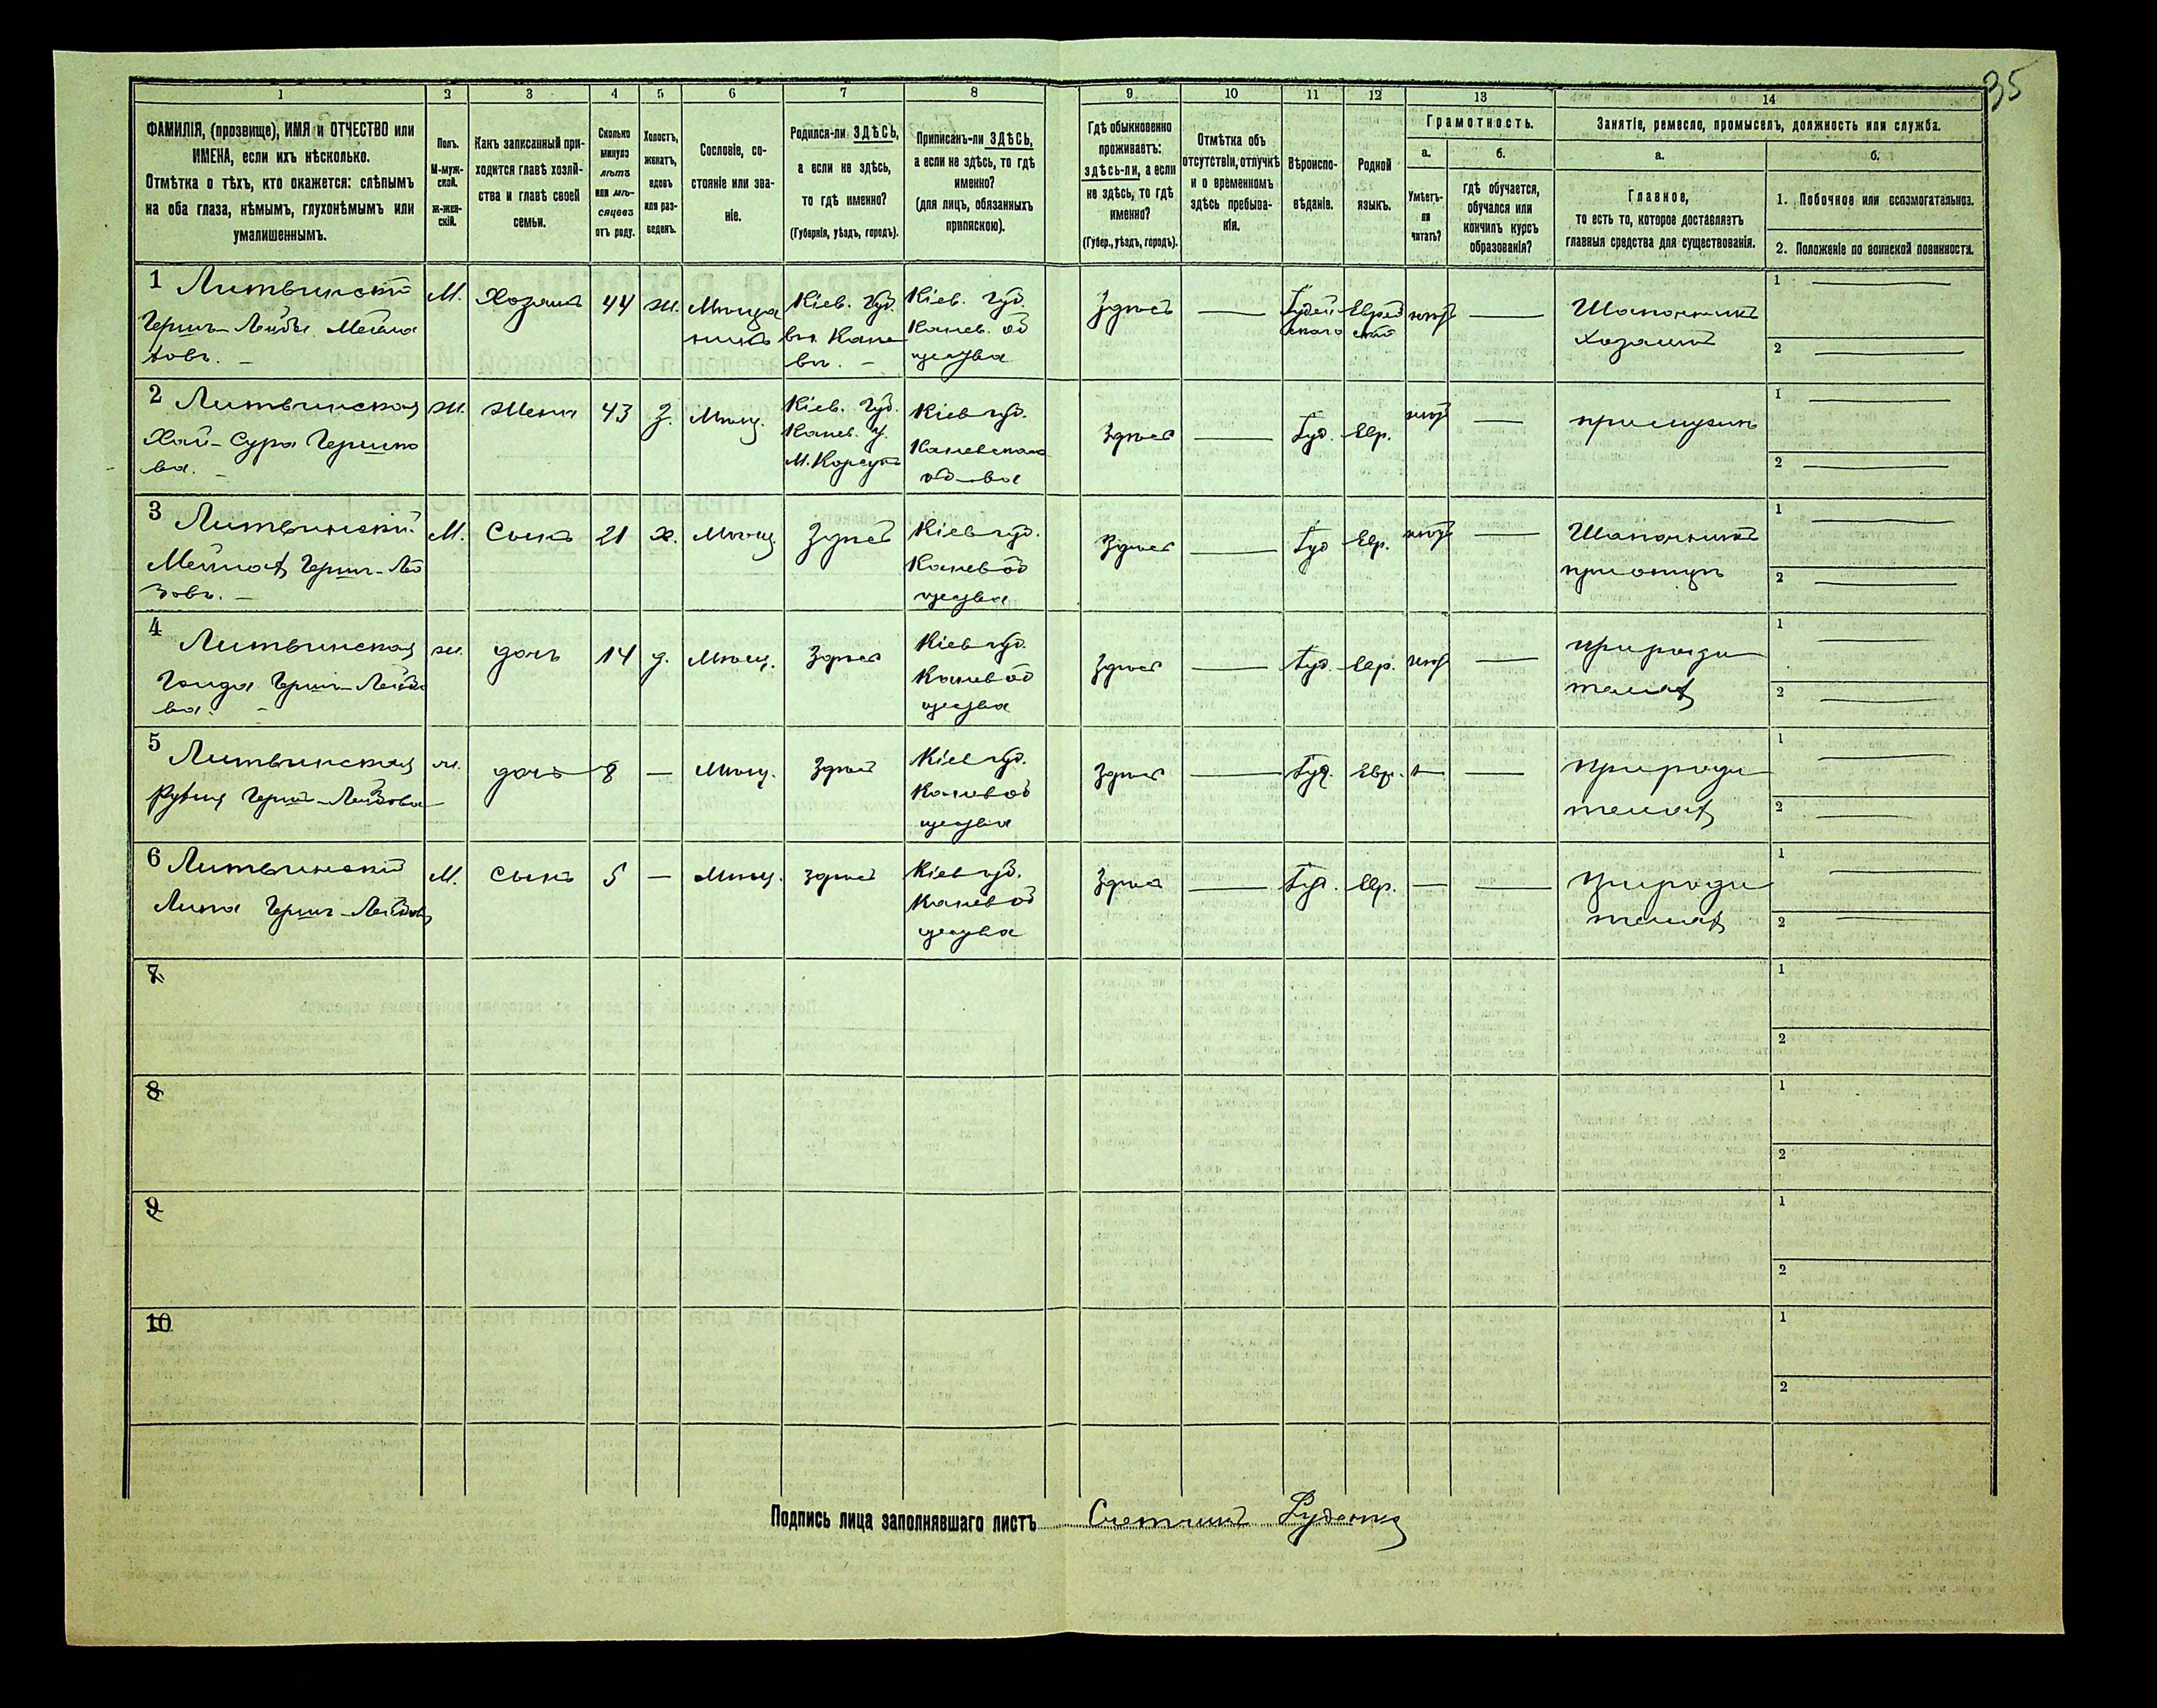 35
1 2 3 4 5 6 7 8 9 10 11 12 13 14
ФАМИЛІЯ, (прозвище), ИМЯ и ОТЧЕСТВО или
ИМЕНА, если ихъ нѣсколько.
Отмѣтка о тѣхъ, кто окажется: слѣпымъ
на оба глаза, нѣмымъ, глухонѣмымъ или
умалишеннымъ.
Полъ.
М-муж-
ской.
Ж-жен-
скій.
Какъ записанный при-
ходится главѣ хозяй-
ства и главѣ своей
семьи.
Сколько
минуло
лѣтъ
или мѣ-
сяцевъ
отъ роду.
Холостъ,
женатъ,
вдовъ
или раз-
веденъ.
Сословіе, со-
стояніе или зва-
ніе.
Родился-ли ЗДѢСЬ,
а если не здѣсь,
то гдѣ именно?
(Губернія, уѣздъ, городъ).
Приписанъ-ли ЗДѢСЬ,
а если не здѣсь, то гдѣ
именно?
(для лицъ, обязанныхъ
припискою).
Гдѣ обыкновенно
проживаетъ:
здѣсь-ли, а если
не здѣсь, то гдѣ
именно?
(Губер., уѣздъ, городъ).
Отмѣтка объ
отсутствіи, отлучкѣ
и о временномъ
здѣсь пребыва-
ніи.
Вѣроиспо-
вѣданіе.
Родной
языкъ.
Грамотность.
а.
Умѣетъ-
ли
читать?
б.
гдѣ обучается,
обучался или
кончилъ курсъ
образованія?
Занятіе, ремесло, промыселъ, должность или служба.
а.
Главное,
то есть то, которое доставляетъ
главныя средства для существованія.
б.
1. Побочное или вспомогательное.
2. Положеніе по воинской повинности.
1 Литвинскій
Гершъ-Лейбъ
М.
Хозяинъ
44
ж.
Мѣща
нинъ
Кіев. губ.
въ Кане
въ. —
Кіев. губ.
Канев. об
щества
Здѣсь
Іудей
скаго
Еврей
скій
Шапочникъ
хозяинъ
1
2
2 Литвинская
Хая-Сура Гершко
ва. —
ж.
Жена
43
З.
Мѣщ.
Кіев. Губ.
Канев. у.
М. Корсунь
Кіев губ.
Каневскаго
об—ва
Здѣсь
Іуд.
Евр.
при мужѣ
1
2
3 Литвинскій
М.
Сынъ
21
х.
Мѣщ.
Здѣсь
Кіев губ.
Канев об
щества
Здѣсь
Іуд
Евр.
Шапочникъ
при отцѣ
1
2
4 Литвинская
ж.
дочь
14
д.
Мѣщ.
Здѣсь
Кіев губ.
Канев об
щества
Здѣсь
Іуд.
Евр.
при роди
теляхъ
1
2
5 Литвинская
дочь
8
—
Мѣщ.
Здѣсь
Кіев губ.
Канев об
щества
Здѣсь
Іуд.
Евр.
при роди
теляхъ
1
2
6 Литвинскій
М.
Сынъ
5
—
Мѣщ.
здѣсь
Кіев губ.
Канев об
щества
Здѣсь
Іуд.
Евр.
—
при роди
теляхъ
1
2
7
1
2
8
1
2
9
1
2
10
1
2
Подпись лица заполнявшаго листъ Счетчикъ